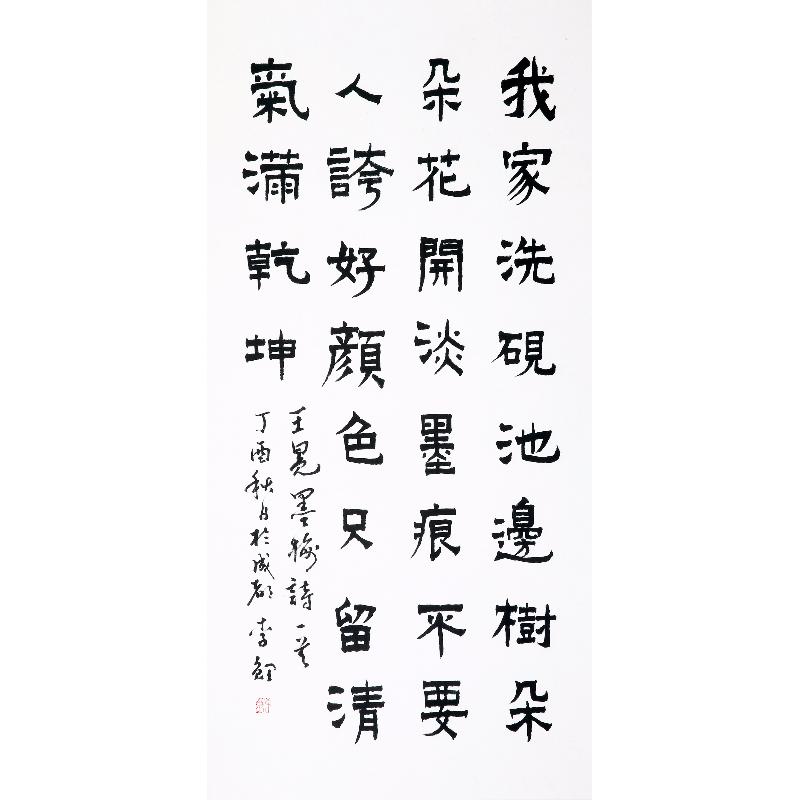 我家洗硯池邊樹朵
朵花開淡墨痕不要
人誇好顏色只留清
氣滿乾坤
王冕墨梅詩一首
丁酉秋月於成都李鯉